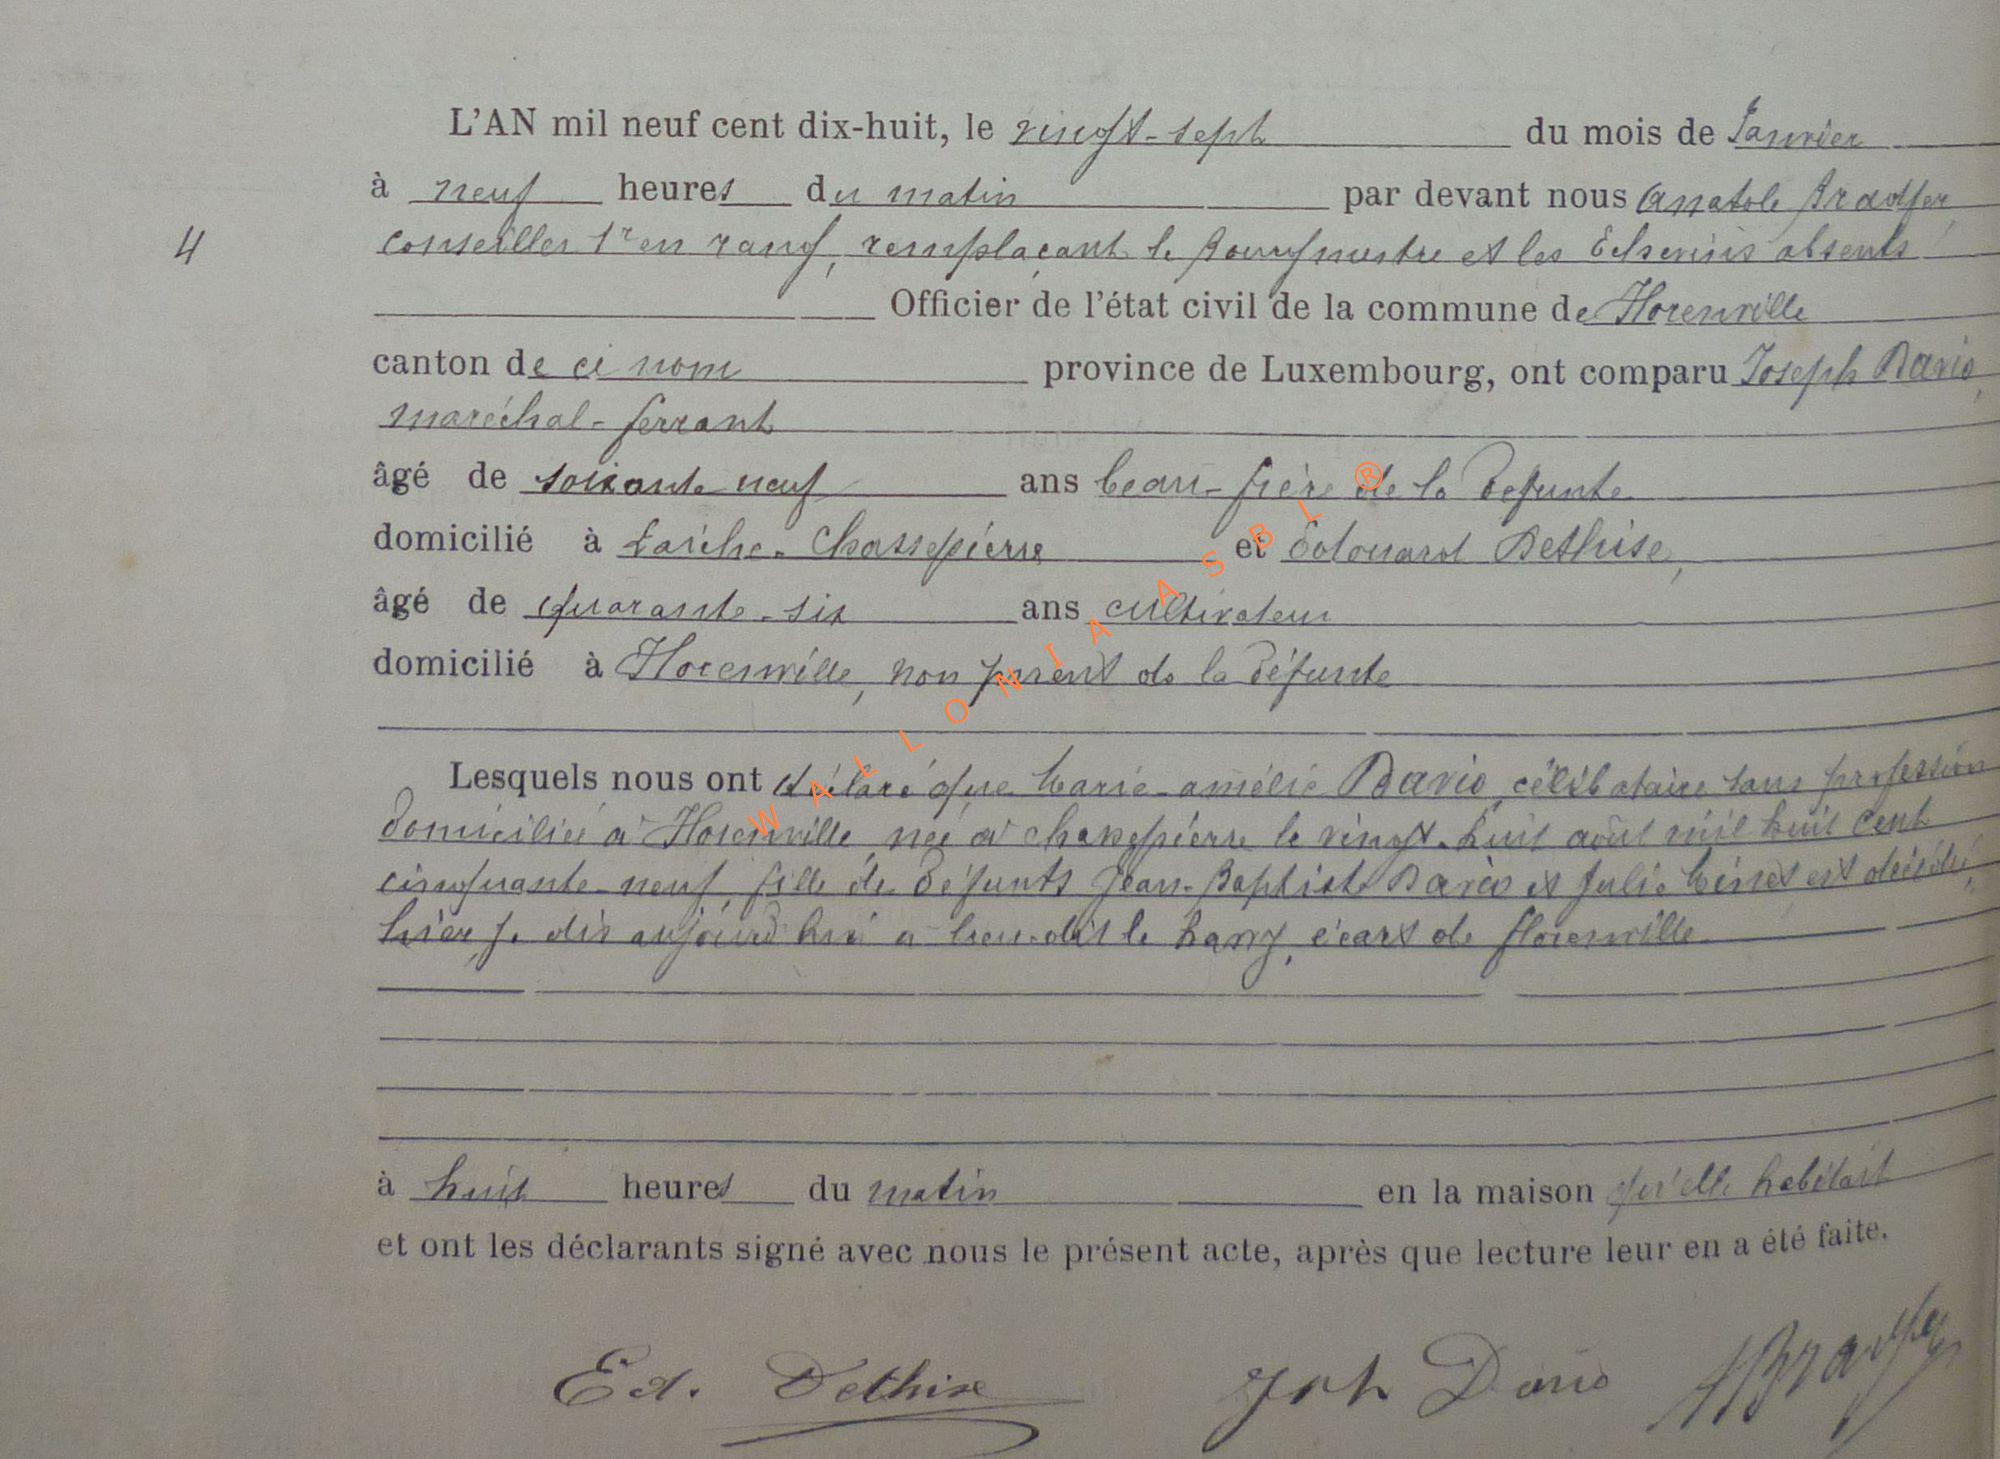 L'AN mil neuf cent dix-huit, le vingt-sept du mois de Janvier
à neuf heures du matin par devant nous Anatole
4 conseiller 1er en rang, remplaçant le Bourgmestre et les Echevins absents
Officier de l'état civil de la commune de Florenville
canton de ce nom province de Luxembourg, ont comparu Joseph Davio,
maréchal-ferrant
âgé de soixante neuf ans beau-frère de la défunte
domicilié à Laiche-Chassepierre et Edouard Dethise,
âgé de quarante-six ans cultivateur
domicilié à Florenville, non parent de la défunte
Lesquels nous ont déclaré que Marie-Amélie Davio, célibataire sans profession
domiciliée à Florenville née à Chassepierre le vingt-huit août mil huit cent
cinquante-neuf, fille de défunts Jean-Baptiste Davio et Julie est décédée,
hier, je dis aujourd'hui a lieu-dit le hany, écart de florenville
à huit heures du matin en la maison qu'elle habitait
et ont les déclarants signé avec nous le présent acte, après que lecture leur en a été faite.
Ed. Dethise Jph Davio
WALLONIA ASBL ®